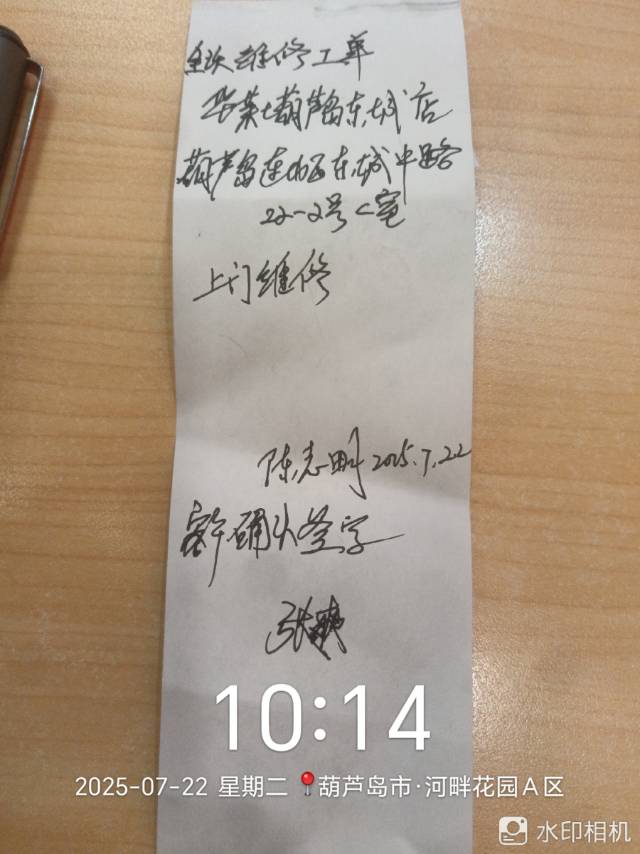 维修工单
华莱士葫芦岛东城店
葫芦岛连山区东城中路
22-2号C室
上门维修
陈志明 2025.7.22
客户确认签字
张
10:14
2025-07-22 星期二 葫芦岛市·河畔花园A区
水印相机